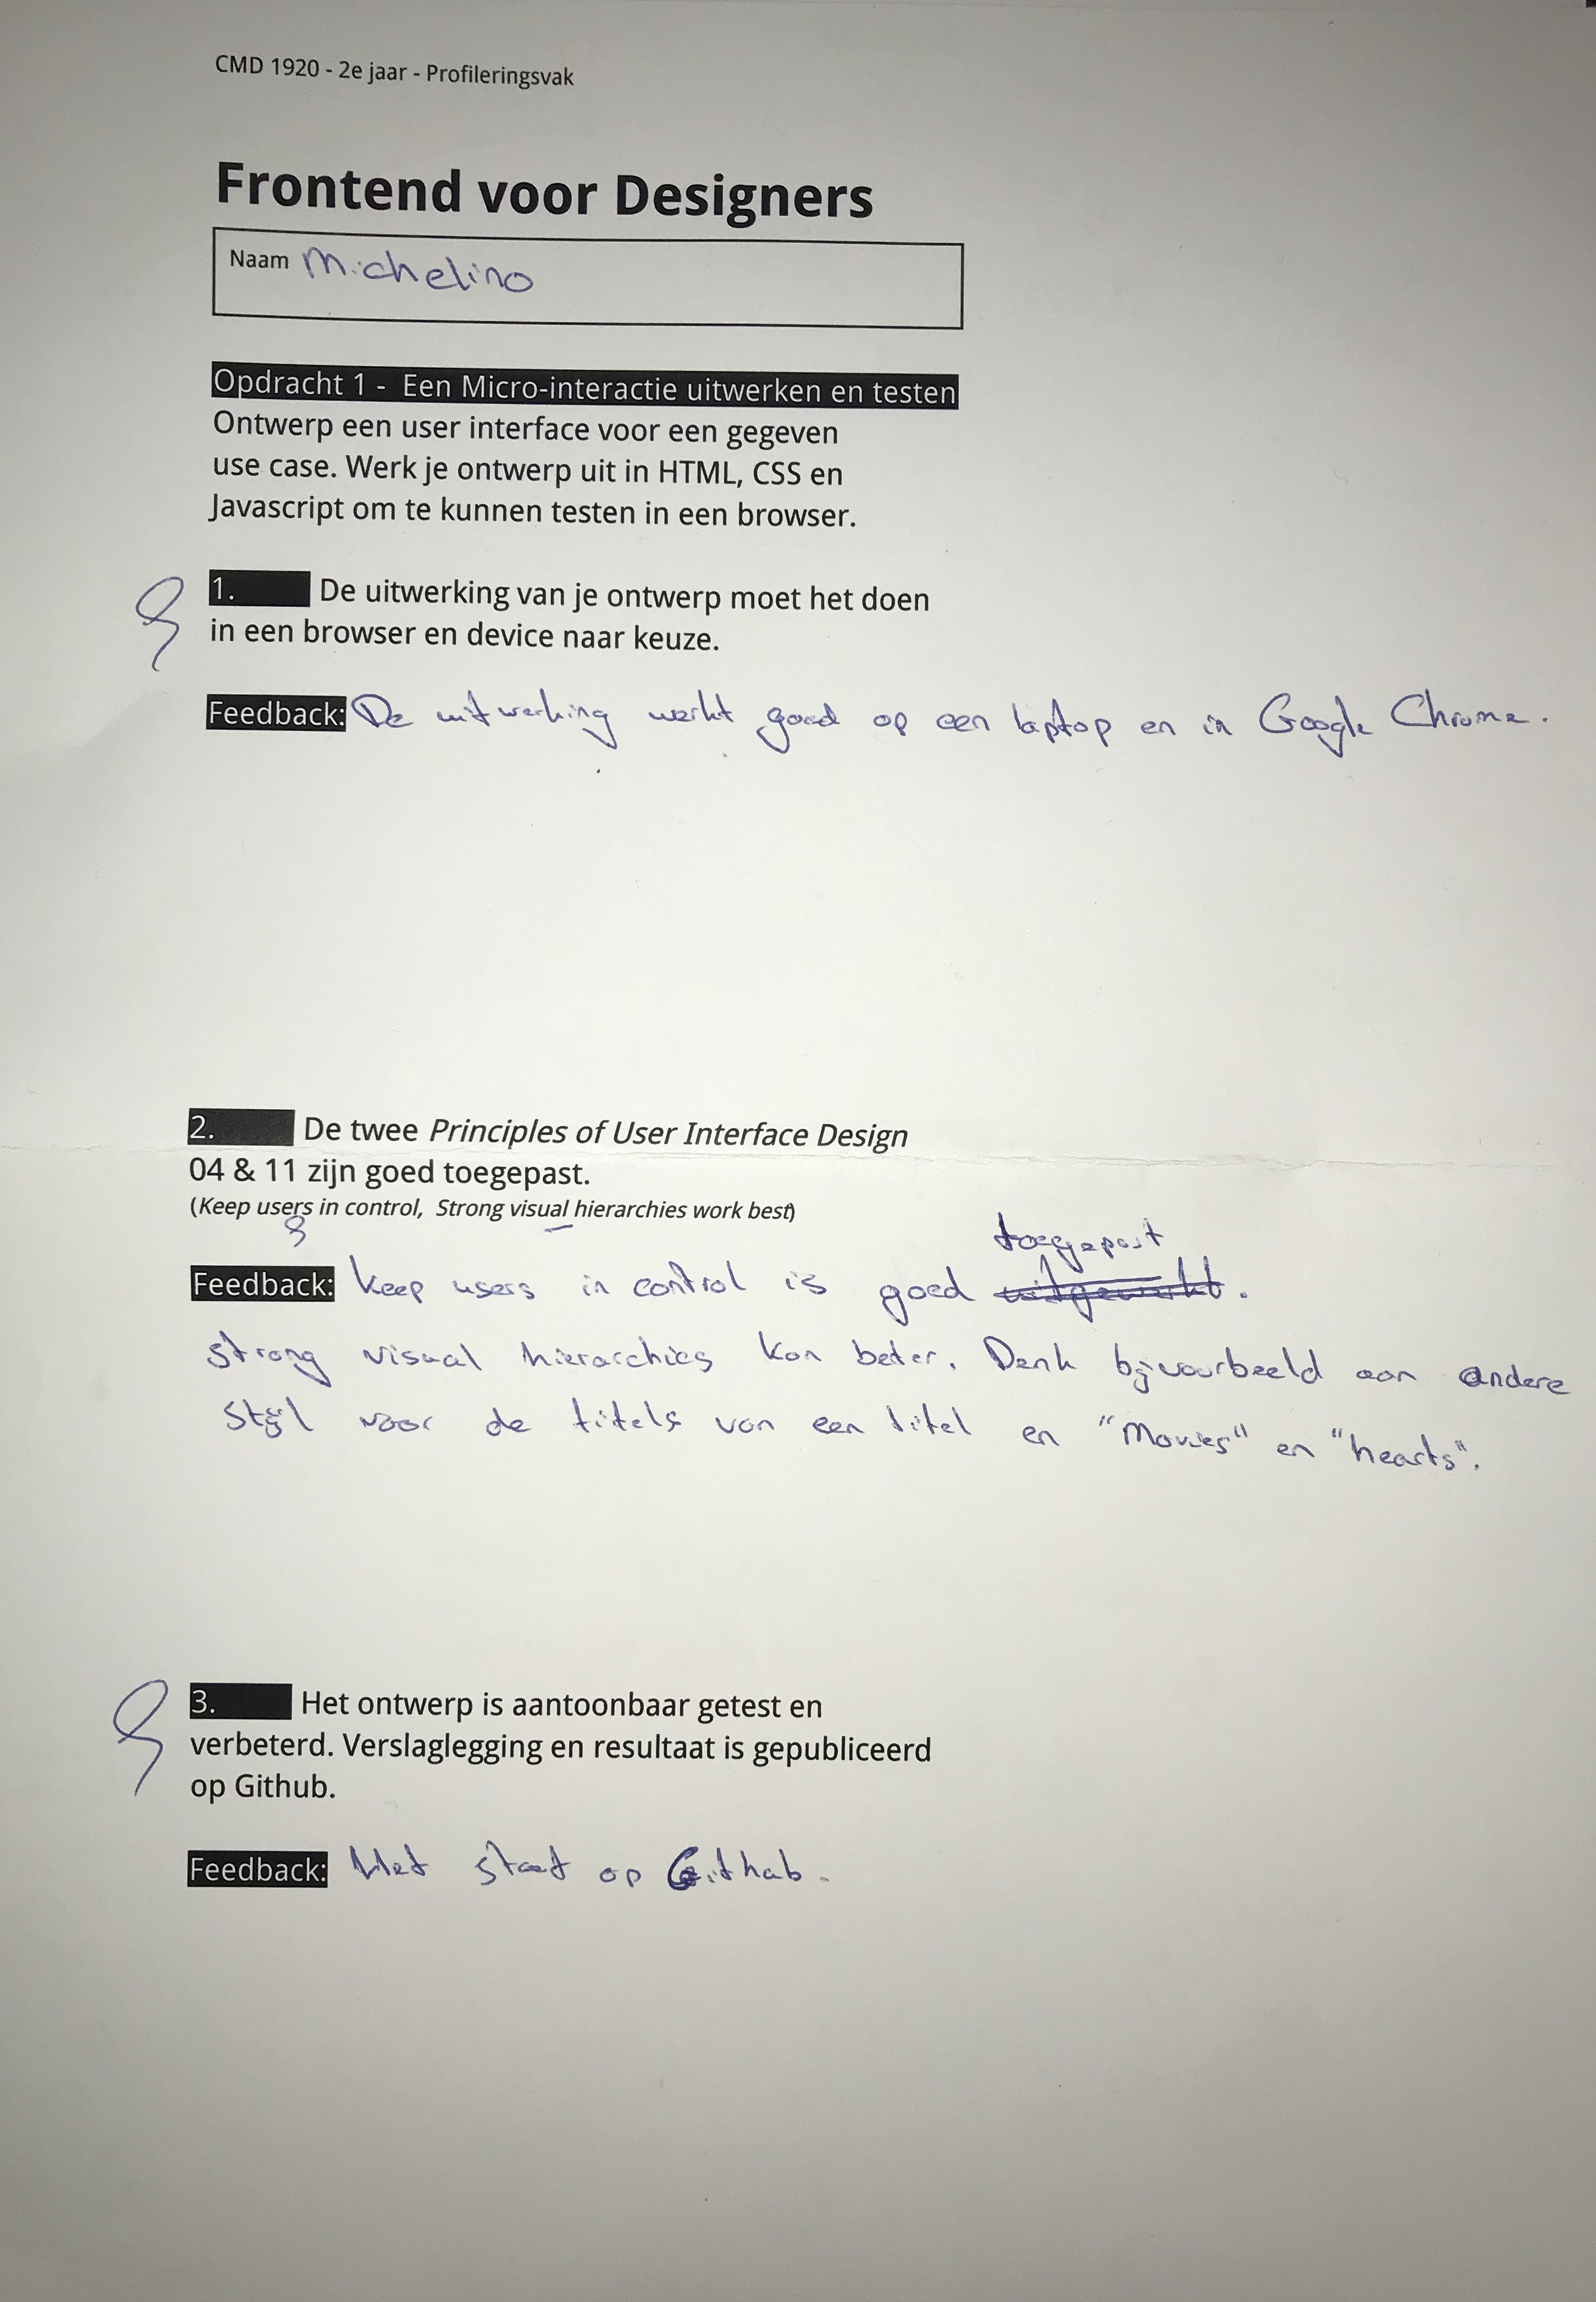 CMD 1920 - 2e jaar - Profileringsvak
Frontend voor Designers
Naam Michelino
Opdracht 1 - Een Micro-interactie uitwerken en testen
Ontwerp een user interface voor een gegeven
use case. Werk je ontwerp uit in HTML, CSS en
Javascript om te kunnen testen in een browser.
1. De uitwerking van je ontwerp moet het doen
in een browser en device naar keuze.
Feedback: De uitwerking werkt goed op een laptop en in Google Chrome.
2. De twee Principles of User Interface Design
04 & 11 zijn goed toegepast.
(Keep users in control, Strong visual hierarchies work best)
toegepast
Feedback: Keep users in control is goed uitgewerkt.
strong visual hierarchies kon beter. Denk bijvoorbeeld aan andere
stijl voor de titels van een titel en "Movies" en "hearts".
3. Het ontwerp is aantoonbaar getest en
verbeterd. Verslaglegging en resultaat is gepubliceerd
op Github.
Feedback: Het staat op Github.